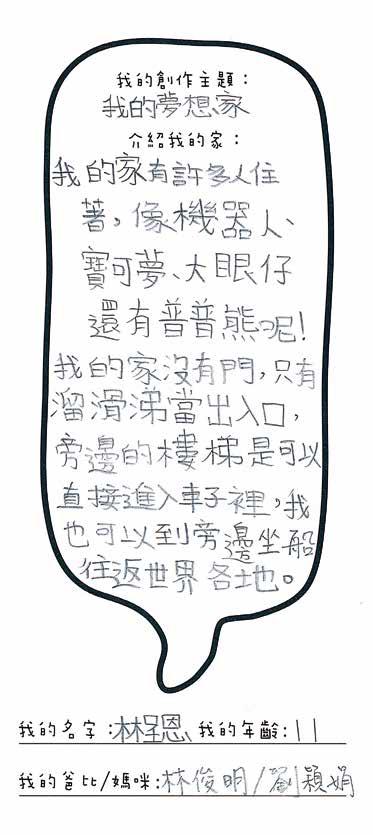 我的創作主題：
我的夢想家
介紹我的家：
我的家有許多人住
著，像機器人、
寶可夢、大眼仔
還有普普熊呢！
我的家沒有門，只有
溜滑涕當出入口，
旁邊的樓梯是可以
直接進入車子裡，我
也可以到旁邊坐船
往返世界各地。
我的名字：林呈恩 我的年齡：11
我的爸比/媽咪：林俊明/劉穎娟